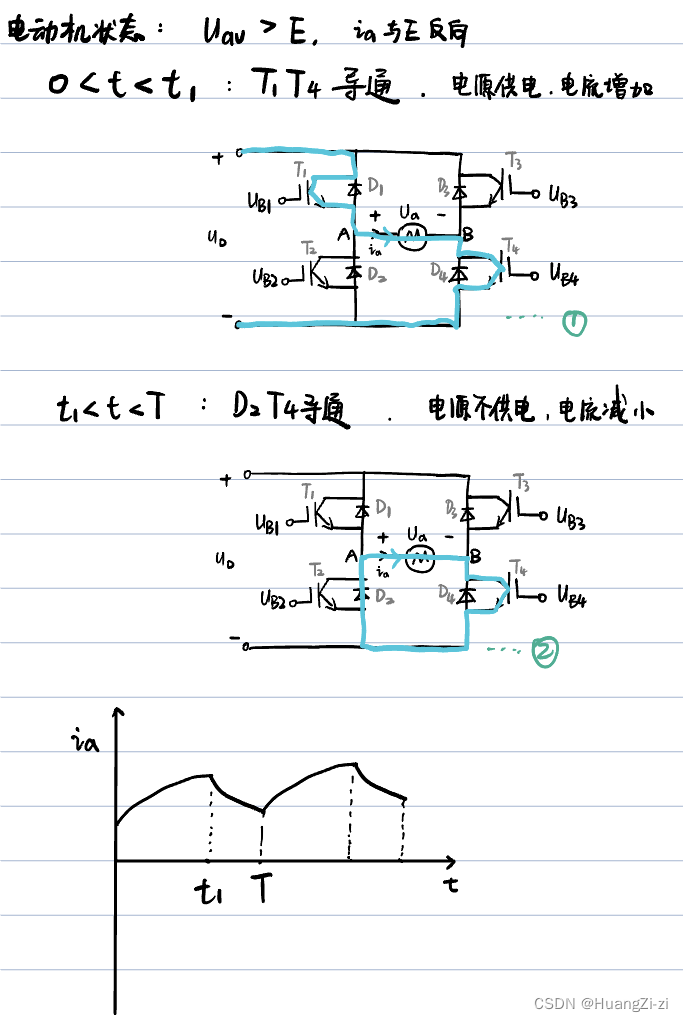 电动机状态： Uav > E， ia与E反向
0 < t < t1 ： T1T4 导通 ． 电源供电．电流增加
+ T1 D1 D3 T3
UB1 + Ua - UB3
UD A ia M B
T2 T4
UB2 D2 D4 UB4
- ····· ①
t1 < t < T ： D2 T4导通 ． 电源不供电，电流减小
+ T1 D1 D3 T3
UB1 + Ua - UB3
UD A ia M B
T2 T4
UB2 D2 D4 UB4
- ····· ②
ia
t1 T t
CSDN @HuangZi-zi